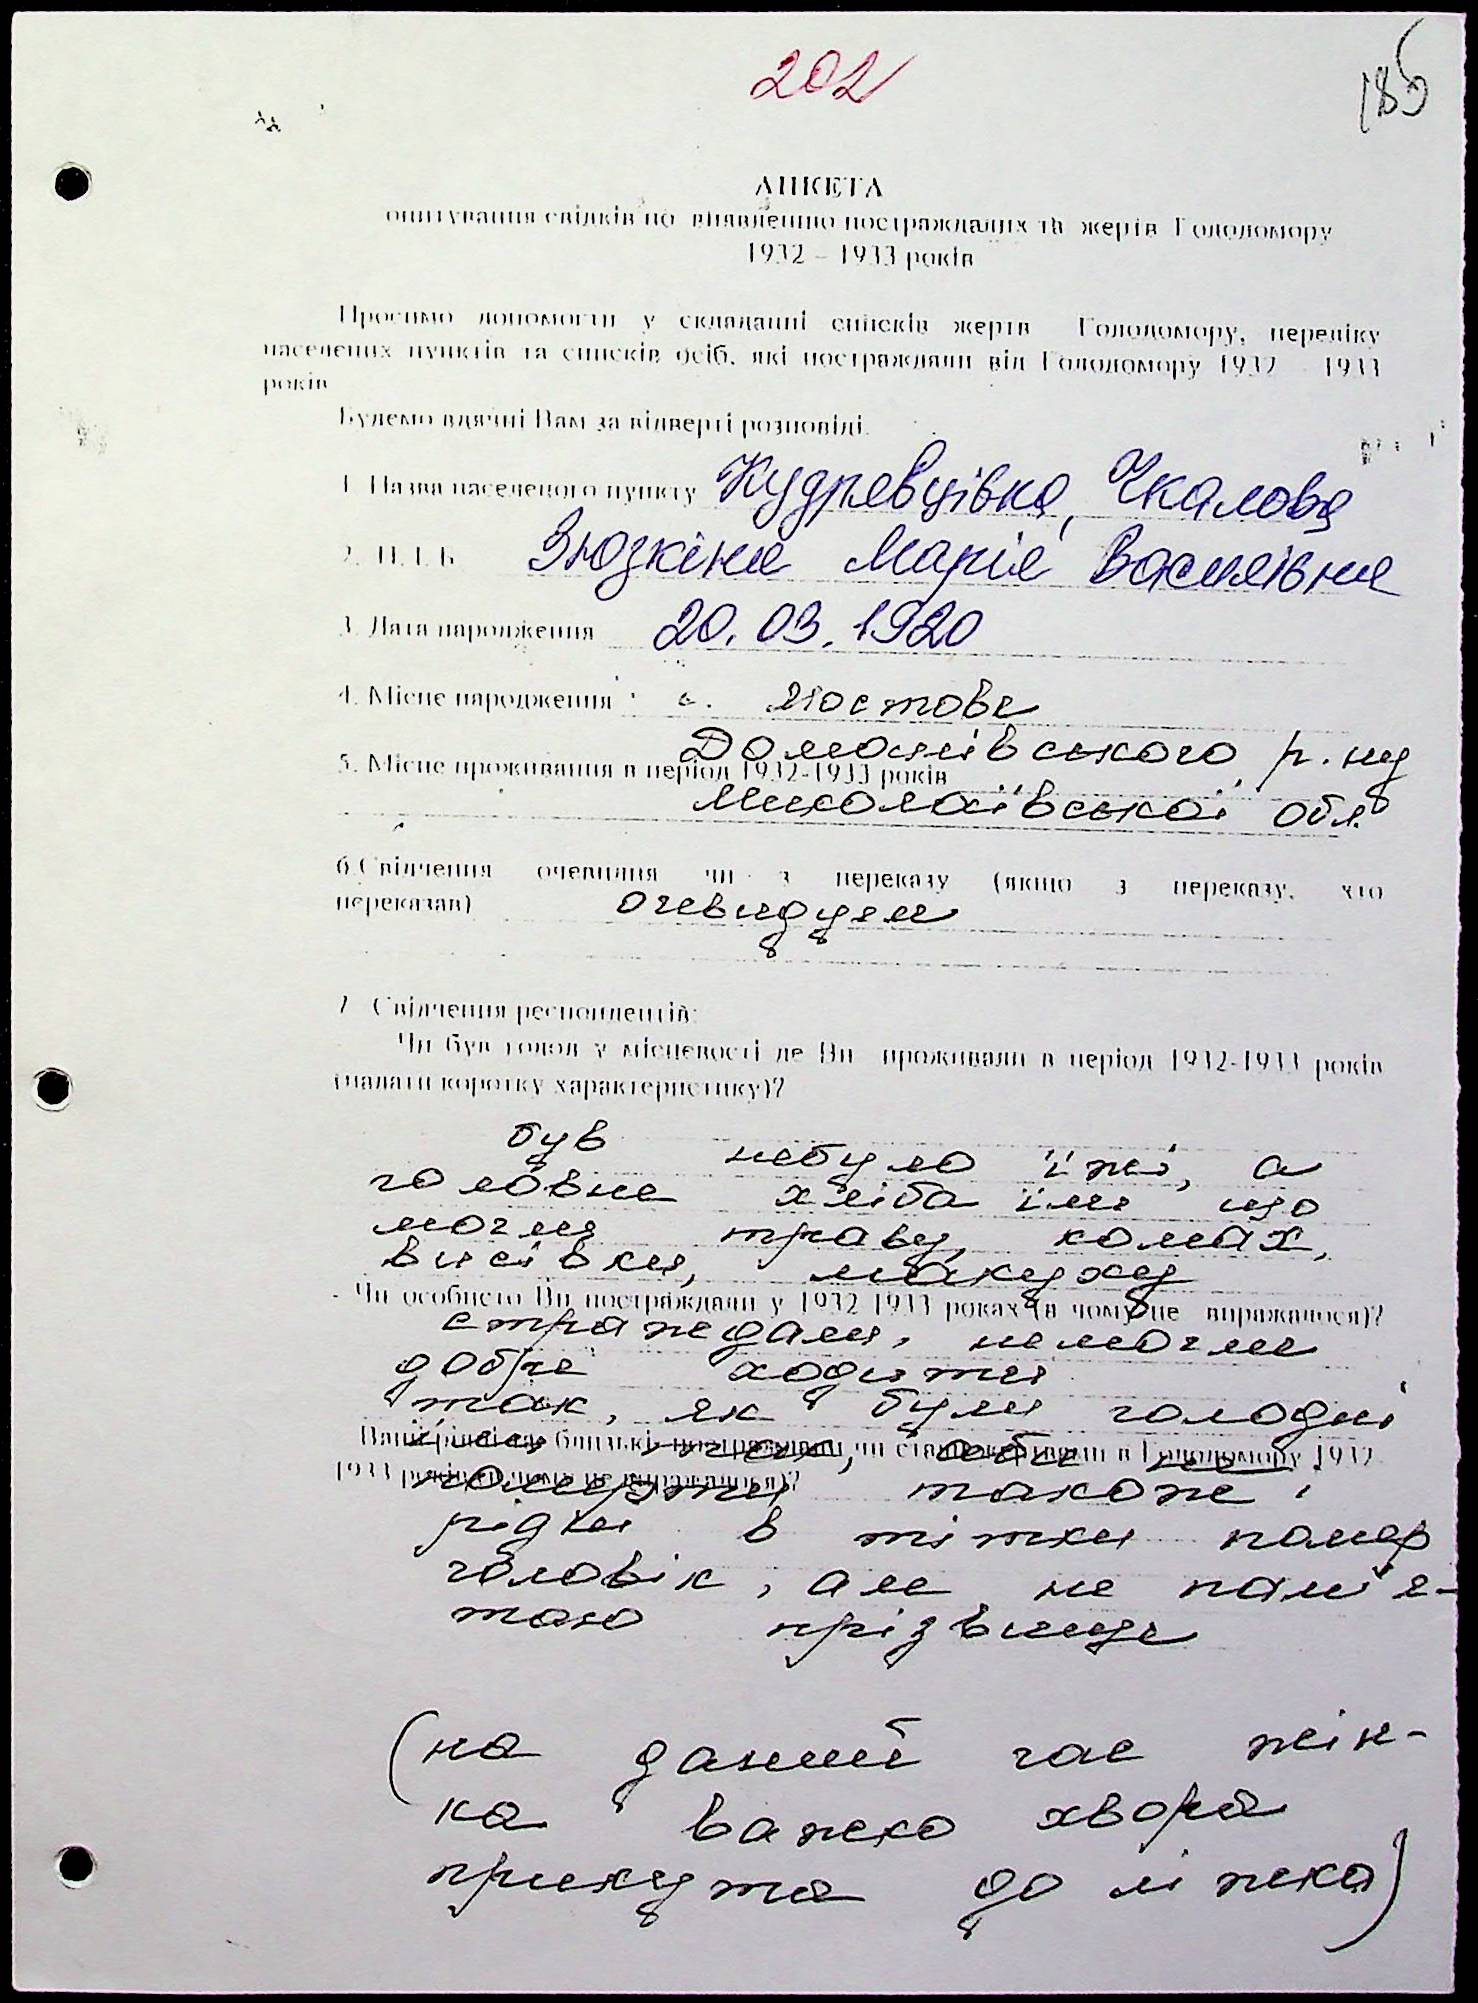 202
185
АНКЕТА
опитування свідків по виявленню постраждалих та жертв Голодомору
1932 – 1933 років
Просимо допомогти у складанні списків жертв Голодомору, переліку
населених пунктів та списків осіб, які постраждали від Голодомору 1932 - 1933
років
Будемо вдячні Вам за відверті розповіді.
1. Назва населеного пункту Кудрявцівка, Чкалова
2. П. І. Б. Зюзкіна Марія Василівна
3. Дата народження 20.03.1920
4. Місце народження с. Мостове
Доманівського р.ну
5. Місце проживання в період 1932-1933 років
Миколаївської обл.
6. Свідчення очевидця чи з переказу (якщо з переказу, хто
переказав) очевидцям
7. Свідчення респондентів:
Чи був голод у місцевості де Ви проживали в період 1932-1933 років
(надати коротку характеристику)?
був небуло їжі, а
головне хліба їли що
могли траву, комах,
висівки, макуху
Чи особисто Ви постраждали у 1932-1933 роках (в чому це виражалося)?
страждали, немогли
добре ходити
так, як були голодні
Ваші рідні чи близькі постраждали чи в Голодомору 1932
1933 років (в чому це виражалося)?
також і
рідні в тітки помер
чоловік, але не пам'я-
таю прізвище
(на даний час жін-
ка важко хвора
прикута до ліжка)